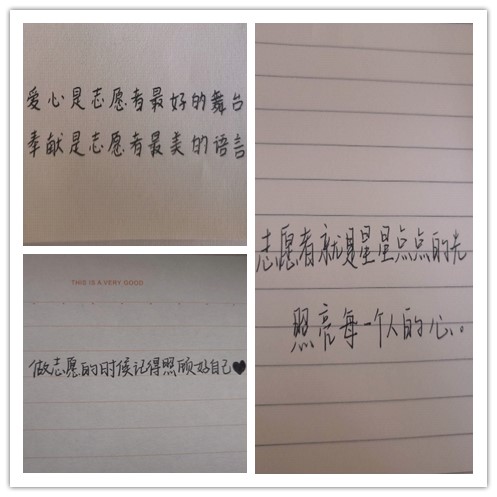 爱心是志愿者最好的舞台
奉献是志愿者最美的语言
THIS IS A VERY GOOD
做志愿的时候记得照顾好自己♥
志愿者就是星星点点的光
照亮每一个人的心。